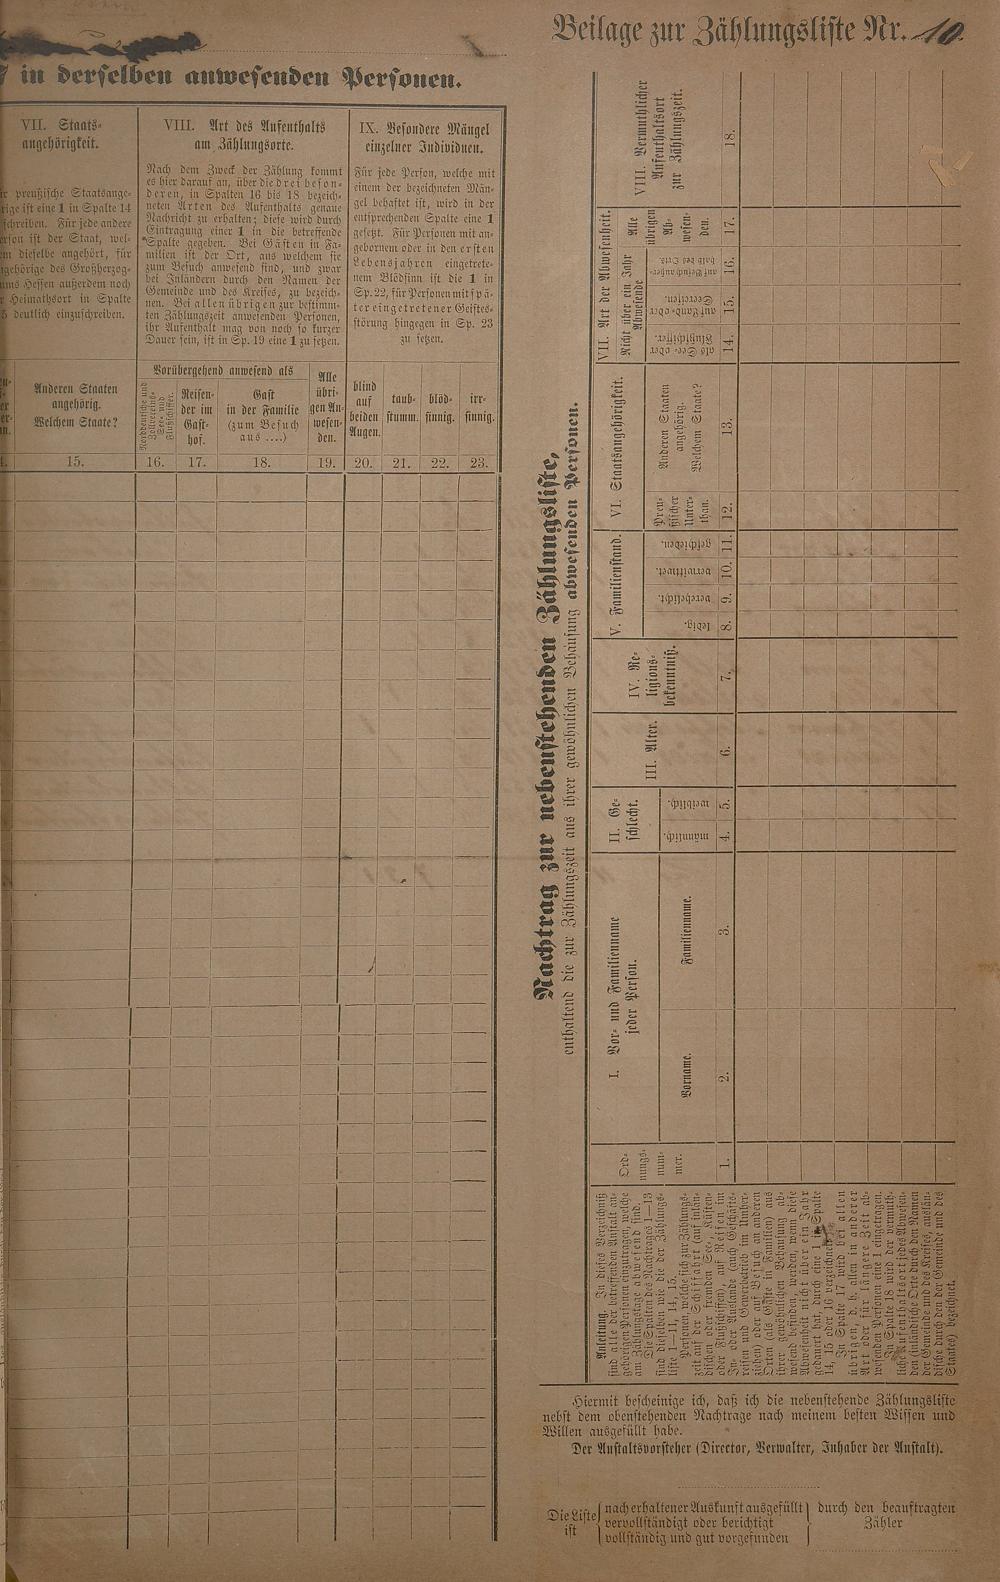 Beilage zur Zählungsliste Nr. 10.
in derselben anwesenden Personen.
VII. Staats-
angehörigkeit.
preußische Staatsange-
ist eine 1 in Spalte 14
schreiben. Für jede andere
ist der Staat, wel-
dieselbe angehört, für
des Großherzog-
Hessen außerdem noch
Heimathsort in Spalte
deutlich einzuschreiben.
Anderen Staaten
angehörig.
Welchem Staate?
15.
VIII. Art des Aufenthalts
am Zählungsorte.
Nach dem Zweck der Zählung kommt
es hier darauf an, über die drei beson-
deren, in Spalten 16 bis 18 bezeich-
neten Arten des Aufenthalts genaue
Nachricht zu erhalten; diese wird durch
Eintragung einer 1 in die betreffende
Spalte gegeben. Bei Gästen in Fa-
milien ist der Ort, aus welchem sie
zum Besuch anwesend sind, und zwar
bei Inländern durch den Namen der
Gemeinde und des Kreises, zu bezeich-
nen. Bei allen übrigen zur bestimm-
ten Zählungszeit anwesenden Personen,
ihr Aufenthalt mag von noch so kurzer
Dauer sein, ist in Sp. 19 eine 1 zu setzen.
Vorübergehend anwesend als
Norddeutsche und
Zollvereins-
See- und
Flußschiffer.
Reisen-
der im
Gast-
hof.
Gast
in der Familie
(zum Besuch
aus ....)
Alle
übri-
gen An-
wesen-
den.
16. 17. 18. 19.
IX. Besondere Mängel
einzelner Individuen.
Für jede Person, welche mit
einem der bezeichneten Män-
gel behaftet ist, wird in der
entsprechenden Spalte eine 1
gesetzt. Für Personen mit an-
gebornem oder in den ersten
Lebensjahren eingetrete-
nem Blödsinn ist die 1 in
Sp. 22, für Personen mit spä-
ter eingetretener Geistes-
störung hingegen in Sp. 23
zu setzen.
blind
auf
beiden
Augen.
taub-
stumm.
blöd-
sinnig.
irr-
sinnig.
20. 21. 22. 23.
Nachtrag zur nebenstehenden Zählungsliste,
enthaltend die zur Zählungszeit aus ihrer gewöhnlichen Behausung abwesenden Personen.
Anleitung. In dieses Verzeichniß
sind alle der betreffenden Anstalt an-
gehörigen Personen einzutragen, welche
am Zählungstage abwesend sind.
Die Spalten des Nachtrages 1—13
sind dieselben wie die der Zählungs-
liste 1—11, 14, 15.
Personen, welche sich zur Zählungs-
zeit auf der Schifffahrt (auf inlän-
dischen oder fremden See-, Küsten-
oder Flußschiffen), auf Reisen im
In- oder Auslande (auch Geschäfts-
reisen und Gewerbetrieb im Umher-
ziehen) oder auf Besuch an anderen
Orten (als Gäste in Familien) aus
ihrer gewöhnlichen Behausung ab-
wesend befinden, werden, wenn diese
Abwesenheit nicht über ein Jahr
gedauert hat, durch eine 1 in Spalte
14, 15 oder 16 verzeichnet.
In Spalte 17 wird bei allen
übrigen, d. h. allen in anderer
Art oder für längere Zeit ab-
wesenden Personen eine 1 eingetragen.
In Spalte 18 wird der vermuth-
liche Aufenthaltsort jedes Abwesen-
den (inländische Orte durch den Namen
der Gemeinde und des Kreises, auslän-
dische durch den der Gemeinde und des
Staates) bezeichnet.
Ord-
nungs-
num-
mer.
1.
I. Vor- und Familienname
jeder Person.
Vorname.
2.
Familienname.
3.
II. Ge-
schlecht.
männlich.
4.
weiblich.
5.
III. Alter.
6.
IV. Re-
ligions-
bekenntniß.
7.
V. Familienstand.
ledig.
8.
verehelicht.
9.
verwittwet.
10.
geschieden.
11.
VI. Staatsangehörigkeit.
Preu-
ßischer
Unter-
than.
12.
Anderen Staaten
angehörig.
Welchem Staate?
13.
VII. Art der Abwesenheit.
Nicht über ein Jahr
Abwesende
als See- oder
Flußschiffer.
14.
auf Land- oder
Seereisen.
15.
auf Besuch außer-
halb des Orts.
16.
Alle
übrigen
Ab-
wesen-
den.
17.
VIII. Vermuthlicher
Aufenthaltsort
zur Zählungszeit.
18.
Hiermit bescheinige ich, daß ich die nebenstehende Zählungsliste
nebst dem obenstehenden Nachtrage nach meinem besten Wissen und
Willen ausgefüllt habe.
Der Anstaltsvorsteher (Director, Verwalter, Inhaber der Anstalt).
Die Liste
ist
nach erhaltener Auskunft ausgefüllt
vervollständigt oder berichtigt
vollständig und gut vorgefunden
durch den beauftragten
Zähler